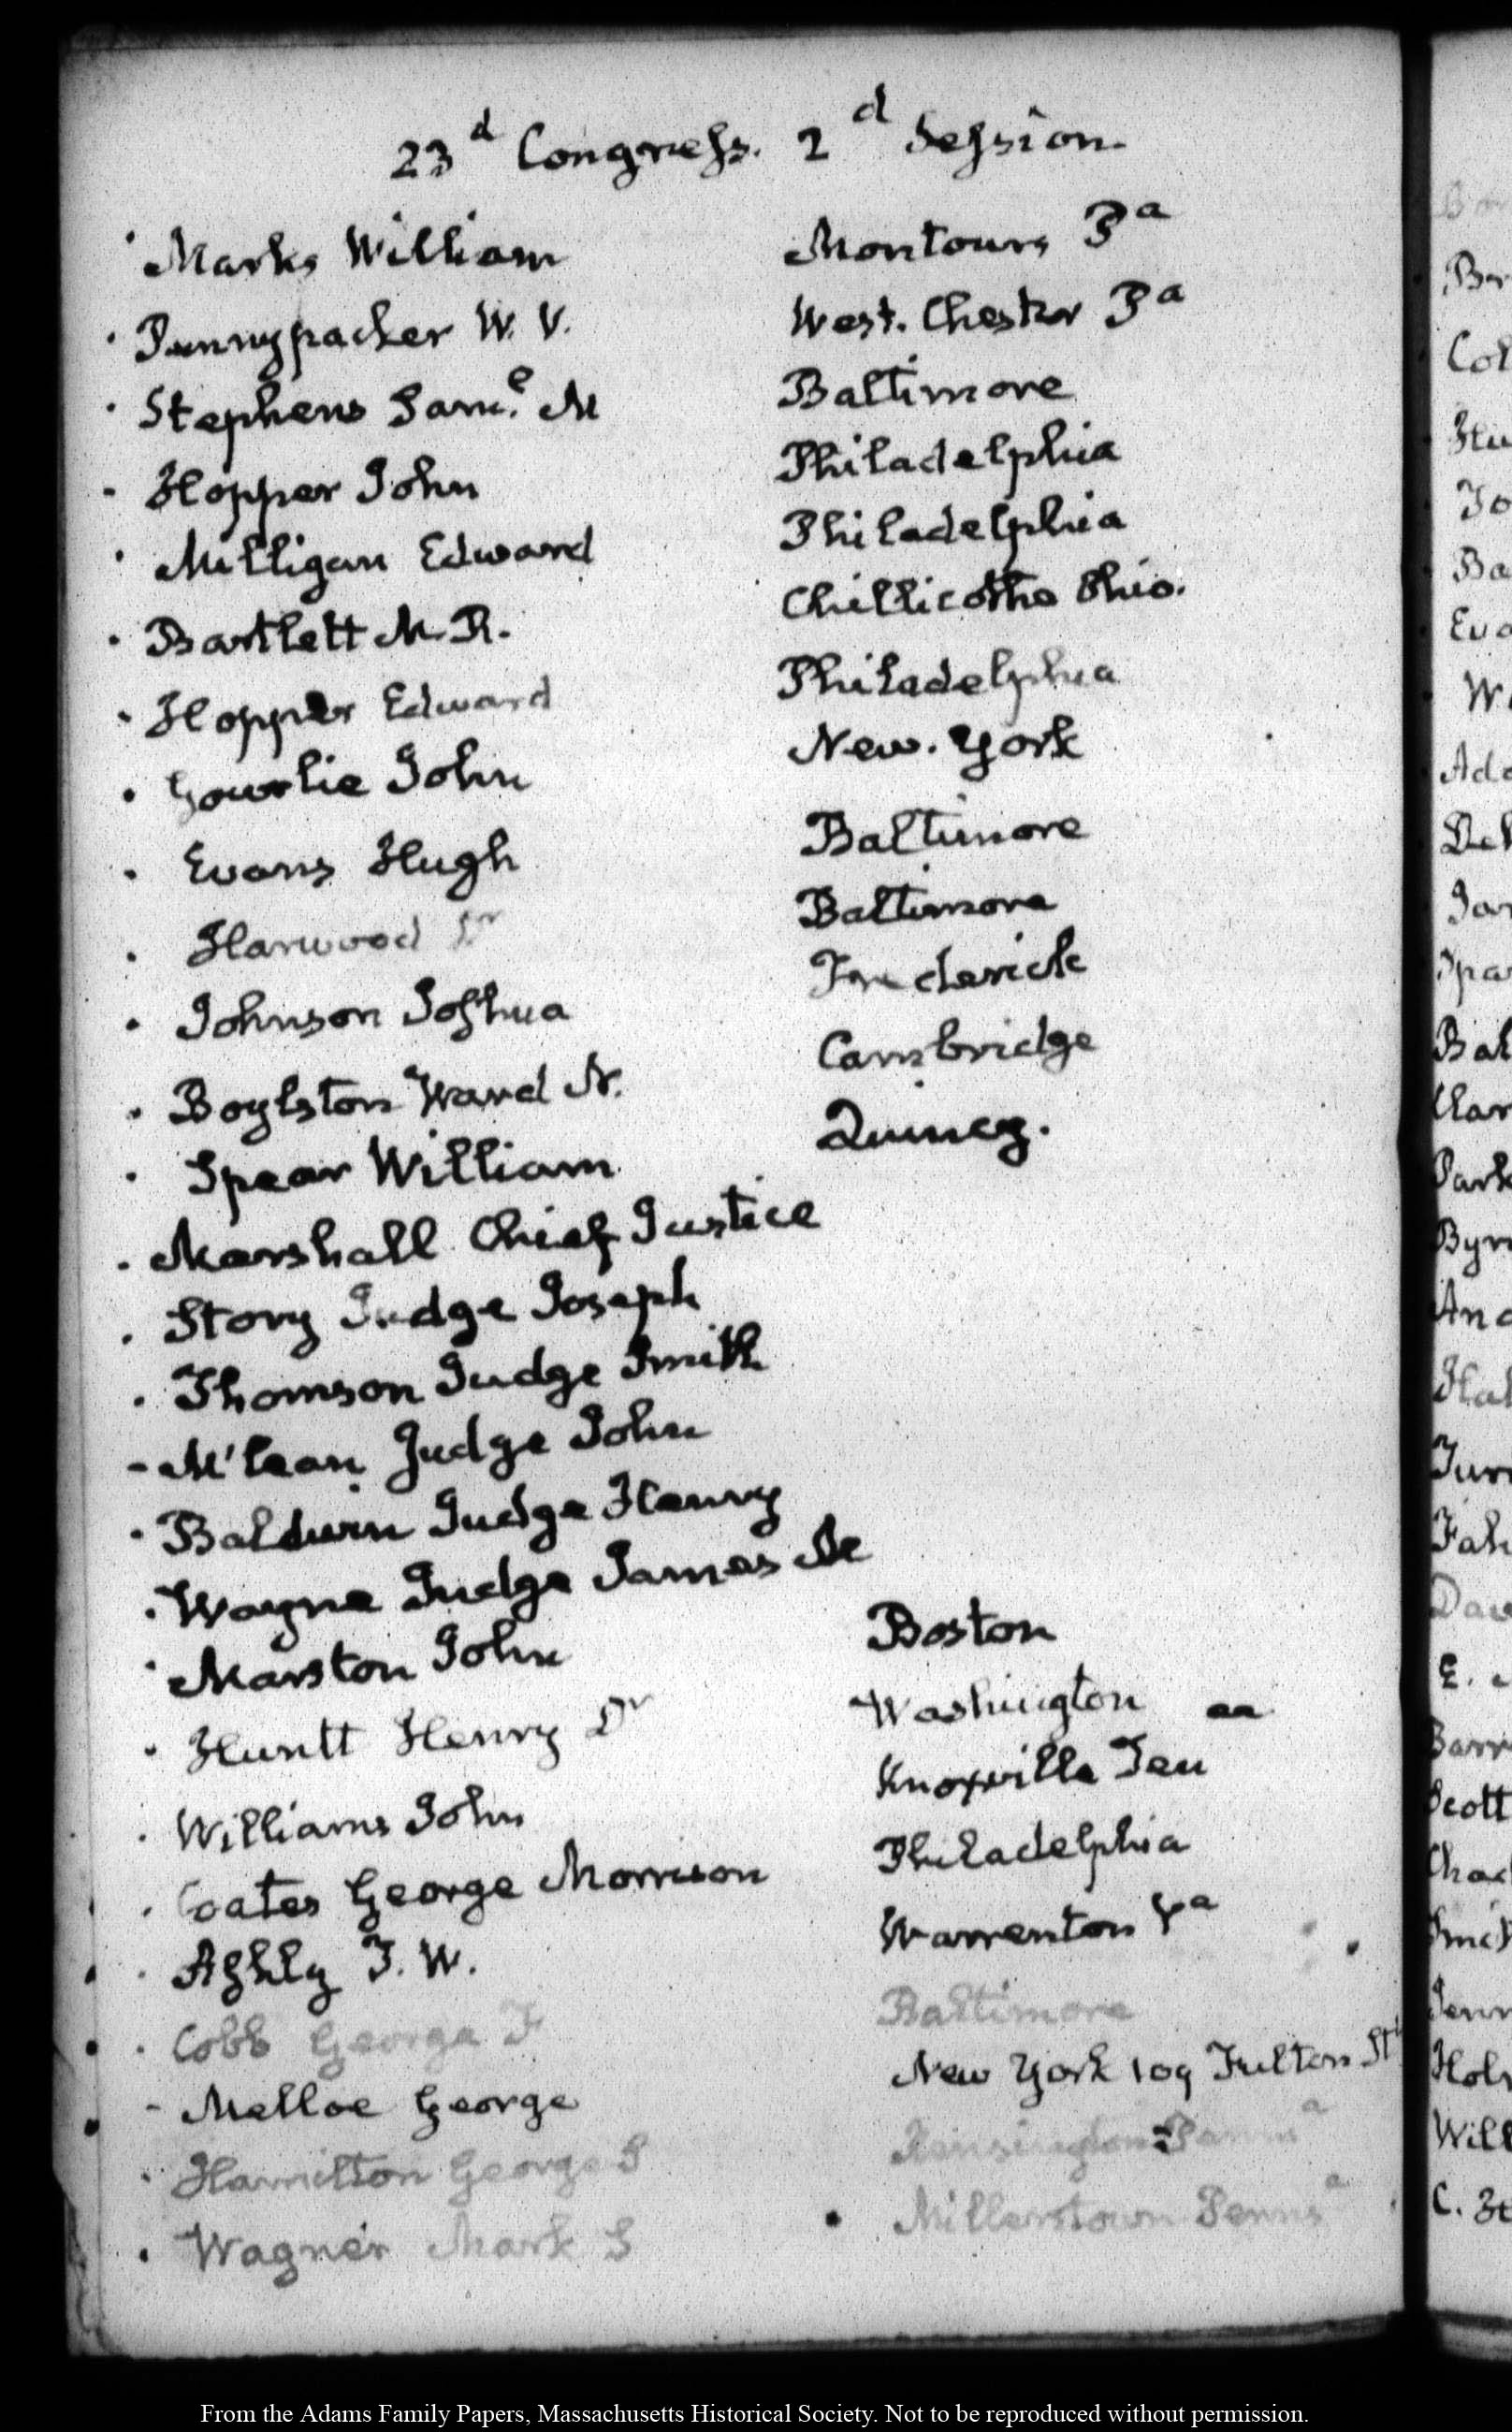 23d Congress. 2d Session.
Marks William Montours Pa
Pennypacker W. V. West. Chester Pa
Stephens Saml. M Baltimore
Hopper John Philadelphia
Milligan Edward Philadelphia
Bartlett M. R. Chillicothe Ohio.
Hopper Edward Philadelphia
Gourlie John New. York
Evans Hugh Baltimore
Harwood Dr Baltimore
Johnson Joshua Frederick
Boylston Ward N. Cambridge
Spear William Quincy.
Marshall Chief Justice
Story Judge Joseph
Thomson Judge Smith
M'lean Judge John
Baldwin Judge Henry
Wayne Judge James M
Marston John Boston
Huntt Henry Dr Washington
Williams John Knoxville Ten
Coates George Morrison Philadelphia
Ashly T. W. Warrenton Va
Cobb George F Baltimore
Melloe George New York 109 Fulton St
Hamilton George S Kensington Pennsa
Wagner Mark S Millerstown Pennsa
From the Adams Family Papers, Massachusetts Historical Society. Not to be reproduced without permission.